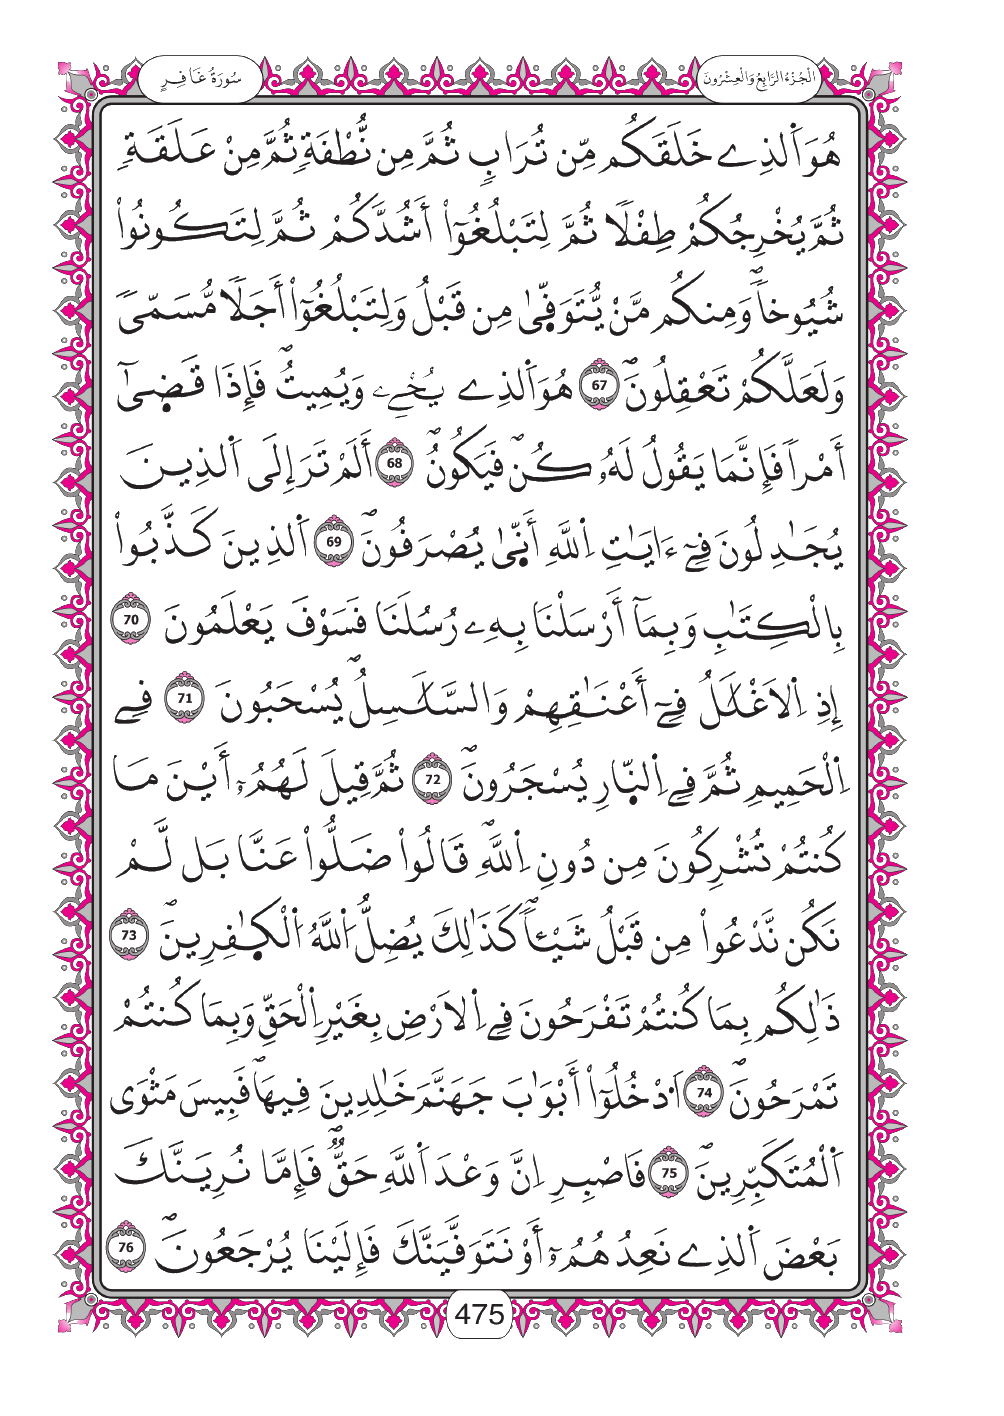 سُورَةُ غَافِرٍ
الْجُزْءُ الرَّابِعُ وَالْعِشْرُونَ
هُوَ اَ۬لذِے خَلَقَكُم مِّن تُرَابٖ ثُمَّ مِن نُّطْفَةٖ ثُمَّ مِنْ عَلَقَةٖ
ثُمَّ يُخْرِجُكُمْ طِفْلاٗ ثُمَّ لِتَبْلُغُوٓاْ أَشُدَّكُمْ ثُمَّ لِتَكُونُواْ
شُيُوخاٗۖ وَمِنكُم مَّنْ يُّتَوَفّ۪يٰ مِن قَبْلُ وَلِتَبْلُغُوٓاْ أَجَلاٗ مُّسَمّيٗ
وَلَعَلَّكُمْ تَعْقِلُونَۖ 67 هُوَ اَ۬لذِے يُحْيِے وَيُمِيتُۖ فَإِذَا قَض۪يٰٓ
أَمْراٗ فَإِنَّمَا يَقُولُ لَهُۥ كُنۖ فَيَكُونُۖ 68 أَلَمْ تَرَ إِلَي اَ۬لذِينَ
يُجَٰدِلُونَ فِےٓ ءَايَٰتِ اِ۬للَّهِ أَنّ۪يٰ يُصْرَفُونَۖ 69 اَ۬لذِينَ كَذَّبُواْ
بِالْكِتَٰبِ وَبِمَآ أَرْسَلْنَا بِهِۦ رُسُلَنَا فَسَوْفَ يَعْلَمُونَ 70
إِذِ اِ۬لَاغْلَٰلُ فِےٓ أَعْنَٰقِهِمْ وَالسَّلَٰسِلُۖ يُسْحَبُونَ 71 فِے
اِ۬لْحَمِيمِ ثُمَّ فِے اِ۬لنّ۪ارِ يُسْجَرُونَۖ 72 ثُمَّ قِيلَ لَهُمُۥٓ أَيْنَ مَا
كُنتُمْ تُشْرِكُونَ مِن دُونِ اِ۬للَّهِۖ قَالُواْ ضَلُّواْ عَنَّا بَل لَّمْ
نَكُن نَّدْعُواْ مِن قَبْلُ شَيْـٔاٗۖ كَذَٰلِكَ يُضِلُّ اُ۬للَّهُ اُ۬لْكٰ۪فِرِينَۖ 73
ذَٰلِكُم بِمَا كُنتُمْ تَفْرَحُونَ فِے اِ۬لَارْضِ بِغَيْرِ اِ۬لْحَقِّ وَبِمَا كُنتُمْ
تَمْرَحُونَۖ 74 اَ۟دْخُلُوٓاْ أَبْوَٰبَ جَهَنَّمَ خَٰلِدِينَ فِيهَاۖ فَبِيسَ مَثْوَي
اَ۬لْمُتَكَبِّرِينَۖ 75 فَاصْبِرِ اِنَّ وَعْدَ اَ۬للَّهِ حَقّٞۖ فَإِمَّا نُرِيَنَّكَ
بَعْضَ اَ۬لذِے نَعِدُهُمُۥٓ أَوْ نَتَوَفَّيَنَّكَ فَإِلَيْنَا يُرْجَعُونَۖ 76
475